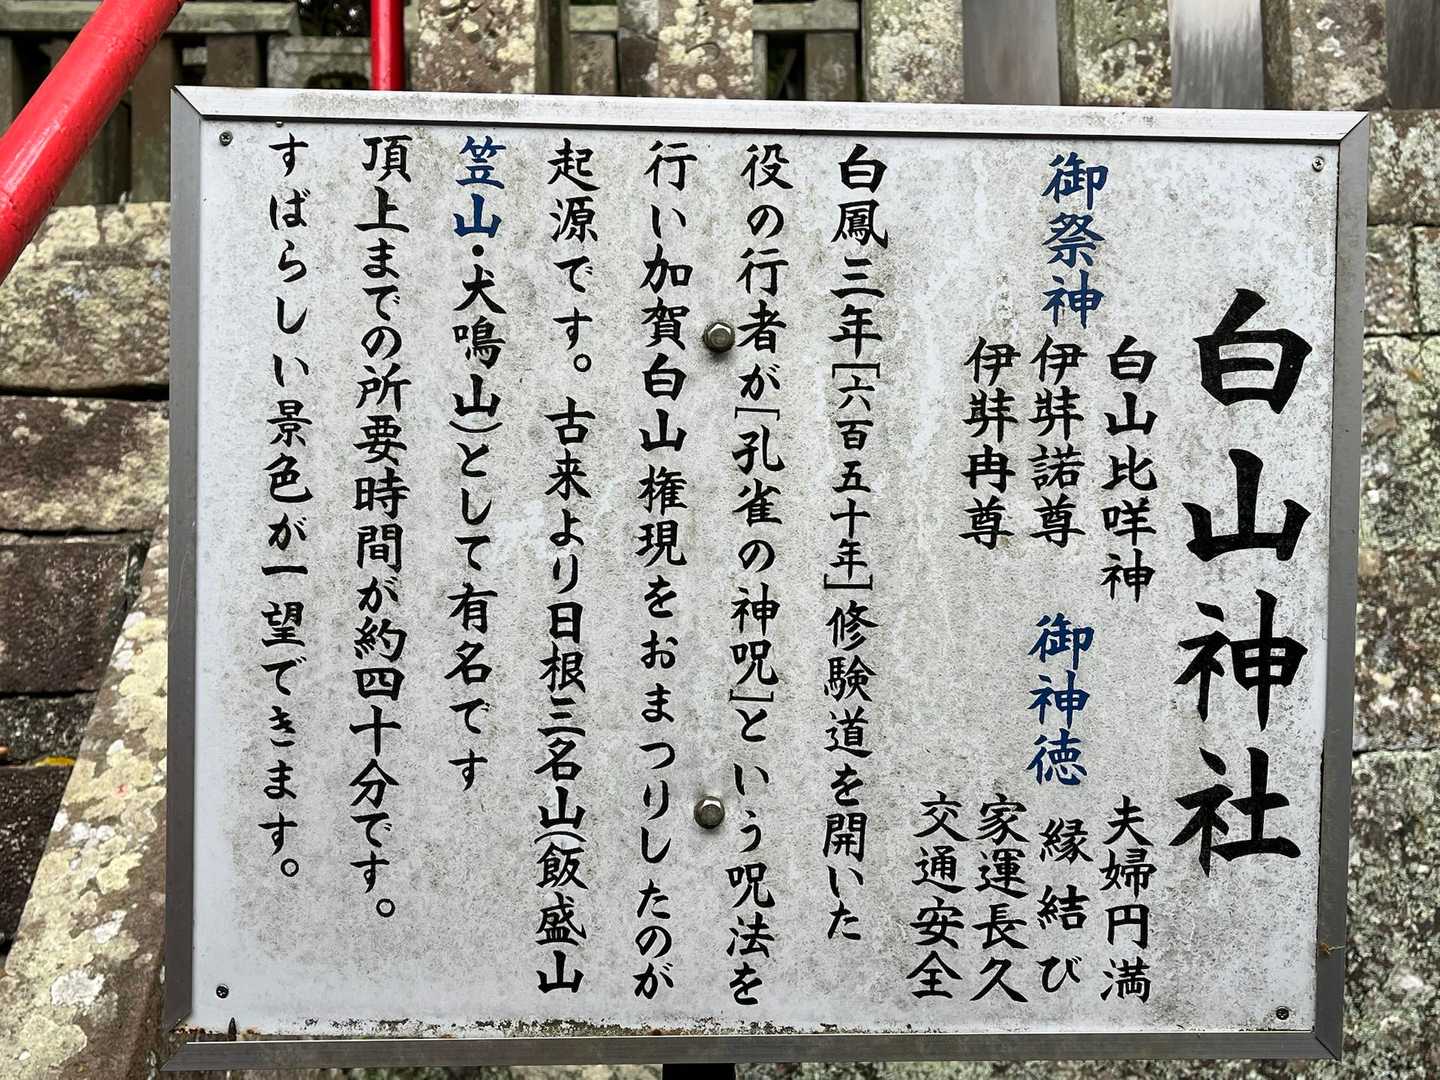 白山神社
御祭神
白山比咩神
伊弉諾尊
伊弉冉尊
御神徳
夫婦円満
縁結び
家運長久
交通安全
白鳳三年[六百五十年]修験道を開いた
役の行者が[孔雀の神呪]という呪法を
行い加賀白山権現をおまつりしたのが
起源です。古来より日根三名山(飯盛山
笠山・犬鳴山)として有名です
頂上までの所要時間が約四十分です。
すばらしい景色が一望できます。